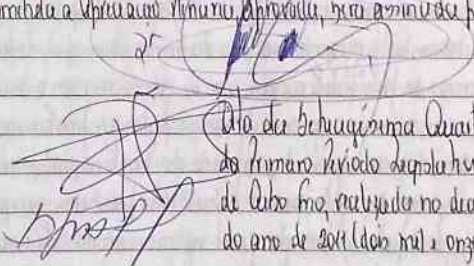 a Apreciação Plenária, Aprovada, será assinada
Ata da Setuagésima Quar
do Primeiro Período Legislativ
de Cabo Frio, realizada no d
do ano de 2011 (dois mil e onz